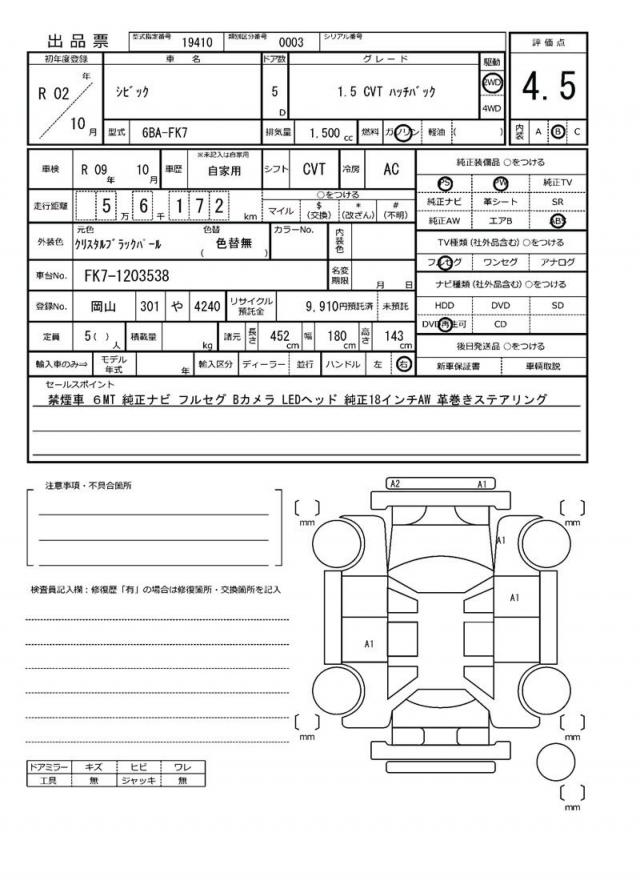 出品票 型式指定番号 19410 類別区分番号 0003 シリアル番号
初年度登録 車名 ドア数 グレード 駆動 評価点
R 02 年 10 月 シビック 5 D 1.5 CVT ハッチバック 2WD 4WD 4.5
型式 6BA-FK7 排気量 1.500 cc 燃料 ガソリン 軽油 ( ) 内装 A B C
車検 R 09 年 10 月 車歴 ※未記入は自家用 自家用 シフト CVT 冷房 AC
純正装備品 ○をつける
PS PW 純正TV
走行距離 5 万 6 千 1 7 2 km ○をつける
マイル $ (交換) * (改ざん) # (不明)
純正ナビ 革シート SR
純正AW エアB ABS
外装色 元色 クリスタルブラックパール 色替 ( 色替無 ) カラーNo. 内装色
TV種類 (社外品含む) ○をつける
フルセグ ワンセグ アナログ
車台No. FK7-1203538 名変期限 月 日
ナビ種類 (社外品含む) ○をつける
登録No. 岡山 301 や 4240 リサイクル預託金 9,910円預託済 未預託
HDD DVD SD
DVD再生可 CD
定員 5 ( ) 人 積載量 kg 諸元 長さ 452 cm 幅 180 cm 高さ 143 cm
後日発送品 ○をつける
輸入車のみ⇒ モデル年式 年 輸入区分 ディーラー 並行 ハンドル 左 右
新車保証書 車輌取説
セールスポイント
禁煙車 6MT 純正ナビ フルセグ Bカメラ LEDヘッド 純正18インチAW 革巻きステアリング
注意事項・不具合箇所
A2 A1
mm mm
A1
検査員記入欄：修復歴「有」の場合は修復箇所・交換箇所を記入
A1
A1
mm mm
ドアミラー キズ ヒビ ワレ
工具 無 ジャッキ 無
mm